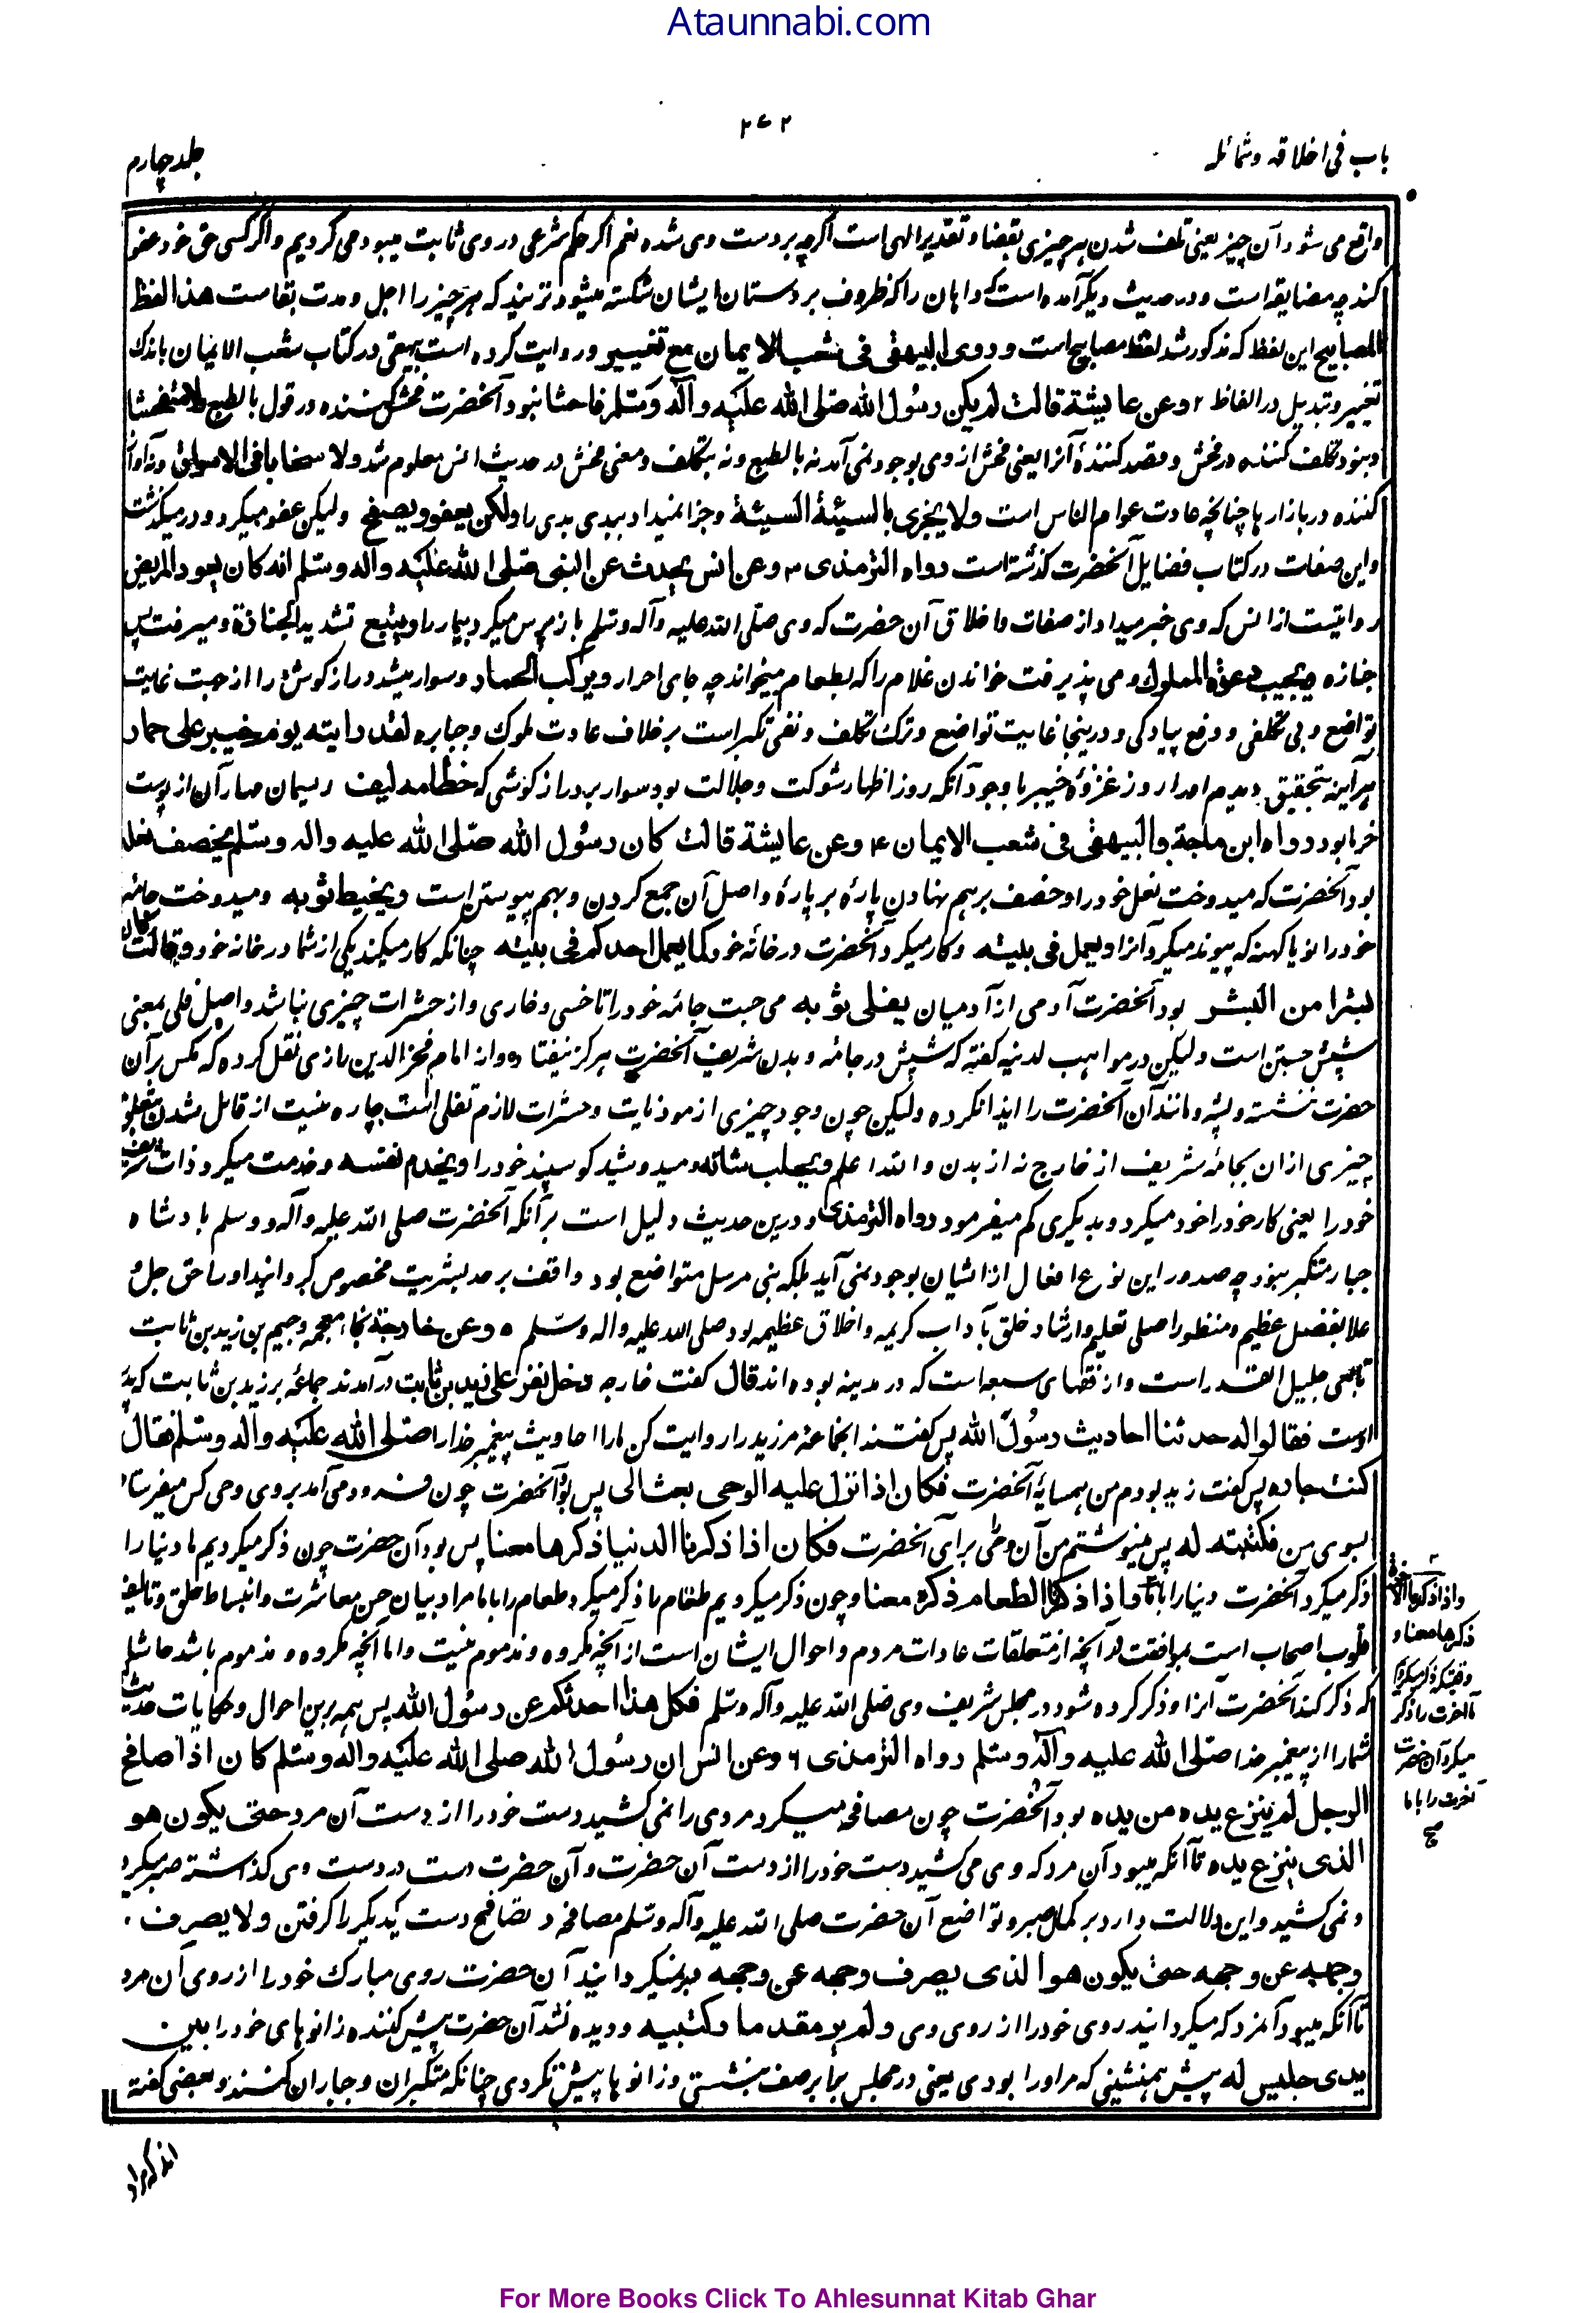 Ataunnabi.com
۴۷۲
باب فی اخلاقه وشمائله
جلد چهارم
واقع می شود آن چیز یعنی تلف شدن هر چیزی بقضا و تقدیر الهی است اگرچه بر دست وی شده نعم اگر حکم شرعی در وی ثابت میبود می کردیم و اگر کسی حق خود عفو
کند چه مضایقه است و در حدیث دیگر آمده است که داهان را که ظروف بر دستان ایشان شکسته میشود نزنید که هر چیز را اجل و مدت بقاست هذا لفظ
المصابیح این لفظ که مذکور شد لفظ مصابیح است و روی البیهقی فی شعب الایمان مع تغییر و روایت کرده است بیهقی در کتاب شعب الایمان باندک
تغییر و تبدیل در الفاظ ۲ وعن عایشة قالت لم یکن رسول الله صلی الله علیه وآله وسلم فاحشا نبود آنحضرت فحش کننده در قول بالطبع ولا متفحشا
ونبود تکلف کننده در فحش و قصد کننده آنرا یعنی فحش از وی بوجود نمی آمد نه بالطبع ونه بتکلف و معنی فحش در حدیث انس معلوم شد ولا سخابا فی الاسواق ونه آواز
کننده در بازارها چنانچه عادت عوام الناس است ولا یجزی بالسیئة السیئة وجزا نمیداد ببدی بدی را ولکن یعفو ویصفح ولیکن عفو میکرد و در میگذشت
واین صفات در کتاب فضایل آنحضرت گذشته است رواه الترمذی ۳ وعن انس یحدث عن النبی صلی الله علیه واله وسلم انه کان یعود المریض
روایتست از انس که وی خبر میداد از صفات واخلاق آن حضرت که وی صلی الله علیه وآله وسلم باز پرس میکرد بیمار را ویتبع تشدید الجنازة ومیرفت پس
جنازه ویجیب دعوة المملوک ومی پذیرفت خواندن غلام را که بطعام میخواند چه جای احرار ویرکب الحمار وسوار میشد دراز گوش را از جهت غایت
تواضع وبی تکلفی و دفع پیادگی و درینجا غایت تواضع وترک تکلف ونفی تکبر است بر خلاف عادت ملوک وجبابره لقد رایته یوم خیبر علی حمار
هر آینه بتحقیق دیدم او را روز غزوه خیبر با وجود آنکه روز اظهار شوکت وجلالت بود سوار بر دراز گوشی که خطامه لیف ریسمان مهار آن از پوست
خرما بود رواه ابن ماجة والبیهقی فی شعب الایمان ۴ وعن عایشة قالت کان رسول الله صلی الله علیه واله وسلم یخصف نعله
بود آنحضرت که میدوخت نعل خود را وخصف بر هم نهادن پارهٔ بر پارهٔ واصل آن جمع کردن وبهم پیوستن است ویخیط ثوبه ومیدوخت جامه
خود را نو یا کهنه که پیوند میکرد آنرا ویعمل فی بیته وکار میکرد آنحضرت در خانه خود کما یعمل احدکم فی بیته چنانکه کار میکند یکی از شما در خانه خود وقالت کان
بشرا من البشر بود آنحضرت آدمی از آدمیان یفلی ثوبه می جست جامه خود را تا خسی وخاری واز حشرات چیزی نباشد واصل فلی بمعنی
شپش جستن است ولیکن در مواهب لدنیه گفته که شپش در جامه وبدن شریف آنحضرت هرگز نیفتاده واز امام فخر الدین رازی نقل کرده که مگس بر آن
حضرت ننشسته وپشه ومانند آن آنحضرت را ایذا نکرده ولیکن چون وجود چیزی از موذیات وحشرات لازم تفلی است چاره نیست از قائل شدن بتعلق
چیزی ازان بجامه شریف از خارج نه از بدن والله اعلم ویحلب شاته ومیدوشید گوسپند خود را ویخدم نفسه وخدمت میکرد ذات شریف
خود را یعنی کار خود را خود میکرد وبدیگری کم میفرمود رواه الترمذی ودرین حدیث دلیل است بر آنکه آنحضرت صلی الله علیه وآله وسلم پادشاه
جبار متکبر نبود چه صدور این نوع افعال از ایشان بوجود نمی آید بلکه نبی مرسل متواضع بود واقف بر حد بشریت مخصوص گردانید او را حق جل و
علا بفضل عظیم ومنظور اصلی تعلیم وارشاد خلق بآداب کریمه واخلاق عظیمه بود صلی الله علیه واله وسلم ۵ وعن خارجة بخاء معجمه وجیم بن زید بن ثابت
تابعی جلیل القدر است واز فقهای سبعه است که در مدینه بوده اند قال گفت خارجه دخل نفر علی زید بن ثابت در آمدند جماعه بر زید بن ثابت که پدر
اوست فقالوا له حدثنا احادیث رسول الله پس گفتند آنجماعه مر زید را روایت کن ما را احادیث پیغمبر خدا را صلی الله علیه واله وسلم فقال
کنت جاره پس گفت زید بودم من همسایهٔ آنحضرت فکان اذا نزل علیه الوحی بعث الی پس بود آنحضرت چون فرود می آمد بر وی وحی کس میفرستاد
بسوی من فکتبته له پس مینوشتم من آن وحی برای آنحضرت فکان اذا ذکرنا الدنیا ذکرها معنا پس بود آن حضرت چون ذکر میکردیم ما دنیا را
ذکر میکرد آنحضرت دنیا را با ما واذا ذکرنا الطعام ذکره معنا وچون ذکر میکردیم طعام ما ذکر میکرد طعام را با ما مراد بیان حسن معاشرت وانبساط خلق وتالیف
قلوب اصحاب است بموافقت در آنچه از متعلقات عادات مردم واحوال ایشان است از آنچه مکروه ومذموم نیست واما آنچه مکروه ومذموم باشد حاشا
که ذکر کند آنحضرت آنرا وذکر کرده شود در مجلس شریف وی صلی الله علیه وآله وسلم فکل هذا احدثکم عن رسول الله پس همه برین احوال وحکایات حدیث
شما را از پیغمبر خدا صلی الله علیه وآله وسلم رواه الترمذی ۶ وعن انس ان رسول الله صلی الله علیه واله وسلم کان اذا صافح
الرجل لم ینزع یده من یده بود آنحضرت چون مصافحه میکرد مردی را نمی کشید دست خود را از دست آن مرد حتی یکون هو
الذی ینزع یده تا آنکه میبود آن مرد که وی می کشید دست خود را از دست آن حضرت وآن حضرت دست در دست وی گذاشته صبر میکرد
ونمی کشید واین دلالت دارد بر کمال صبر وتواضع آن حضرت صلی الله علیه وآله وسلم مصافحه وتصافح دست یکدیگر را گرفتن ولا یصرف
وجهه عن وجهه حتی یکون هو الذی یصرف وجهه عن وجهه ونمیگردانید آن حضرت روی مبارک خود را از روی آن مرد
تا آنکه میبود آنمرد که میگردانید روی خود را از روی وی ولم یر مقدما رکبتیه ودیده نشد آن حضرت پیش کننده زانوهای خود را بین
یدی جلیس له پیش همنشینی که مر او را بودی یعنی در مجلس برابر صف نشستی وزانوها پیش نکردی چنانکه متکبران وجباران کنند وبعضی گفته
واذا ذکرنا الآخرة
ذکرها معنا و
وقتیکه ذکر میکردیم
ما آخرت را ذکر
میکرد آن حضرت
آخرت را با ما
صح
اند که مراد
For More Books Click To Ahlesunnat Kitab Ghar